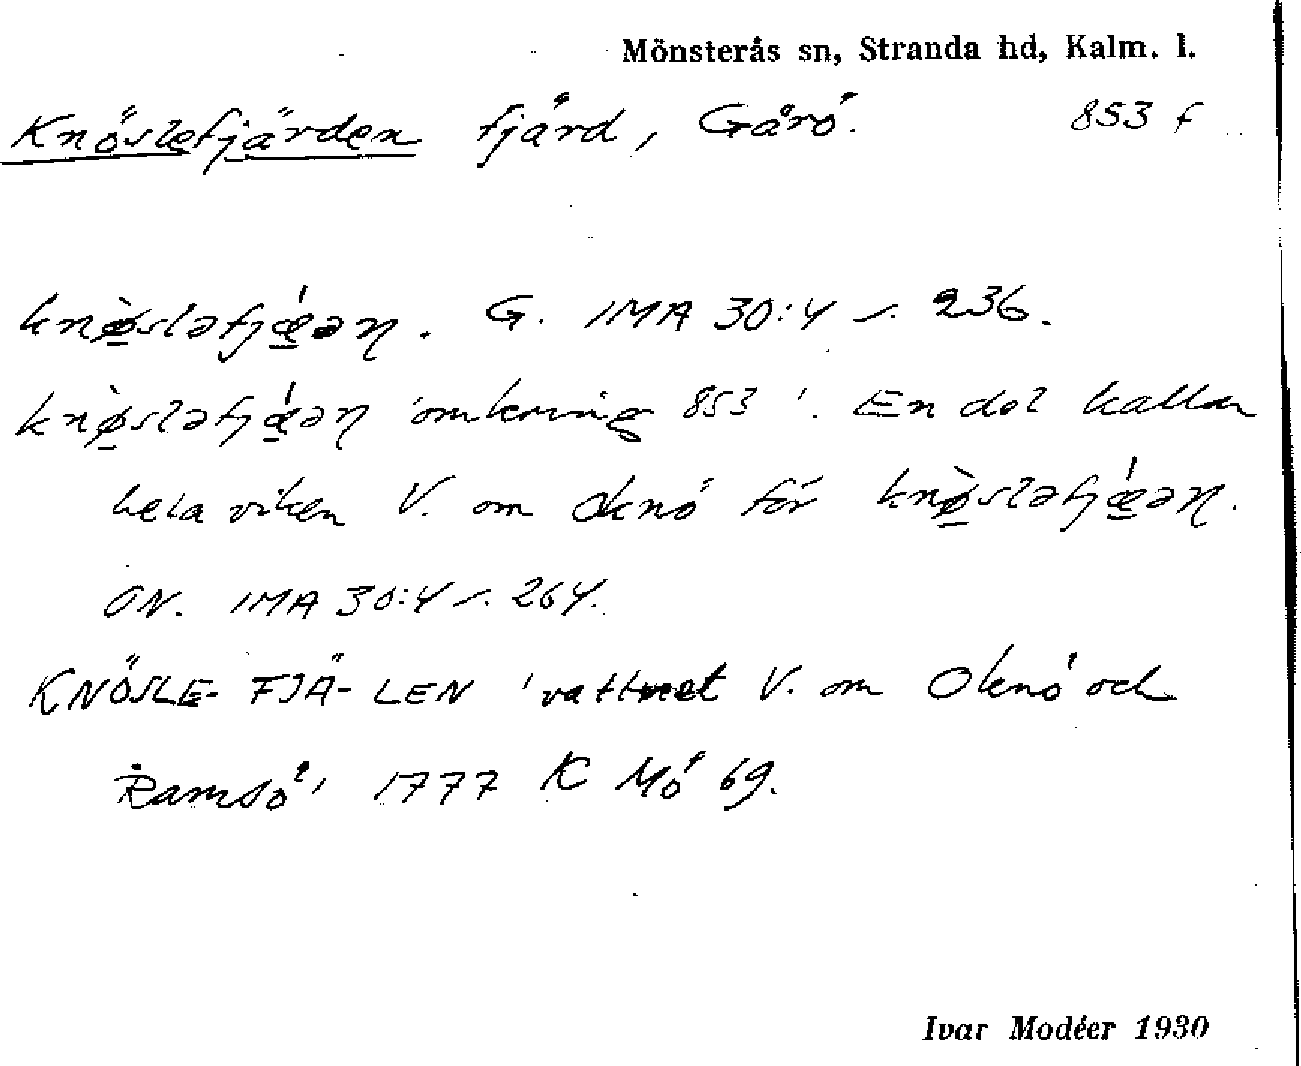 Mönsterås sn, Stranda hd, Kalm. l.
Knöslefjärden fjärd, Gårö. 853 f
knø̀sləfjǽəɳ. G. IMA 30:4 s. 236.
knø̀sləfjǽəɳ 'omkring 853'. En del kallar
hela viken V. om Oknö för knø̀sləfjǽəɳ.
ON. IMA 30:4 s. 264.
KNÖSLE- FJÄ- LEN 'vattnet V. om Oknö och
Ramsö' 1777 K Mö 69.
Ivar Modéer 1930